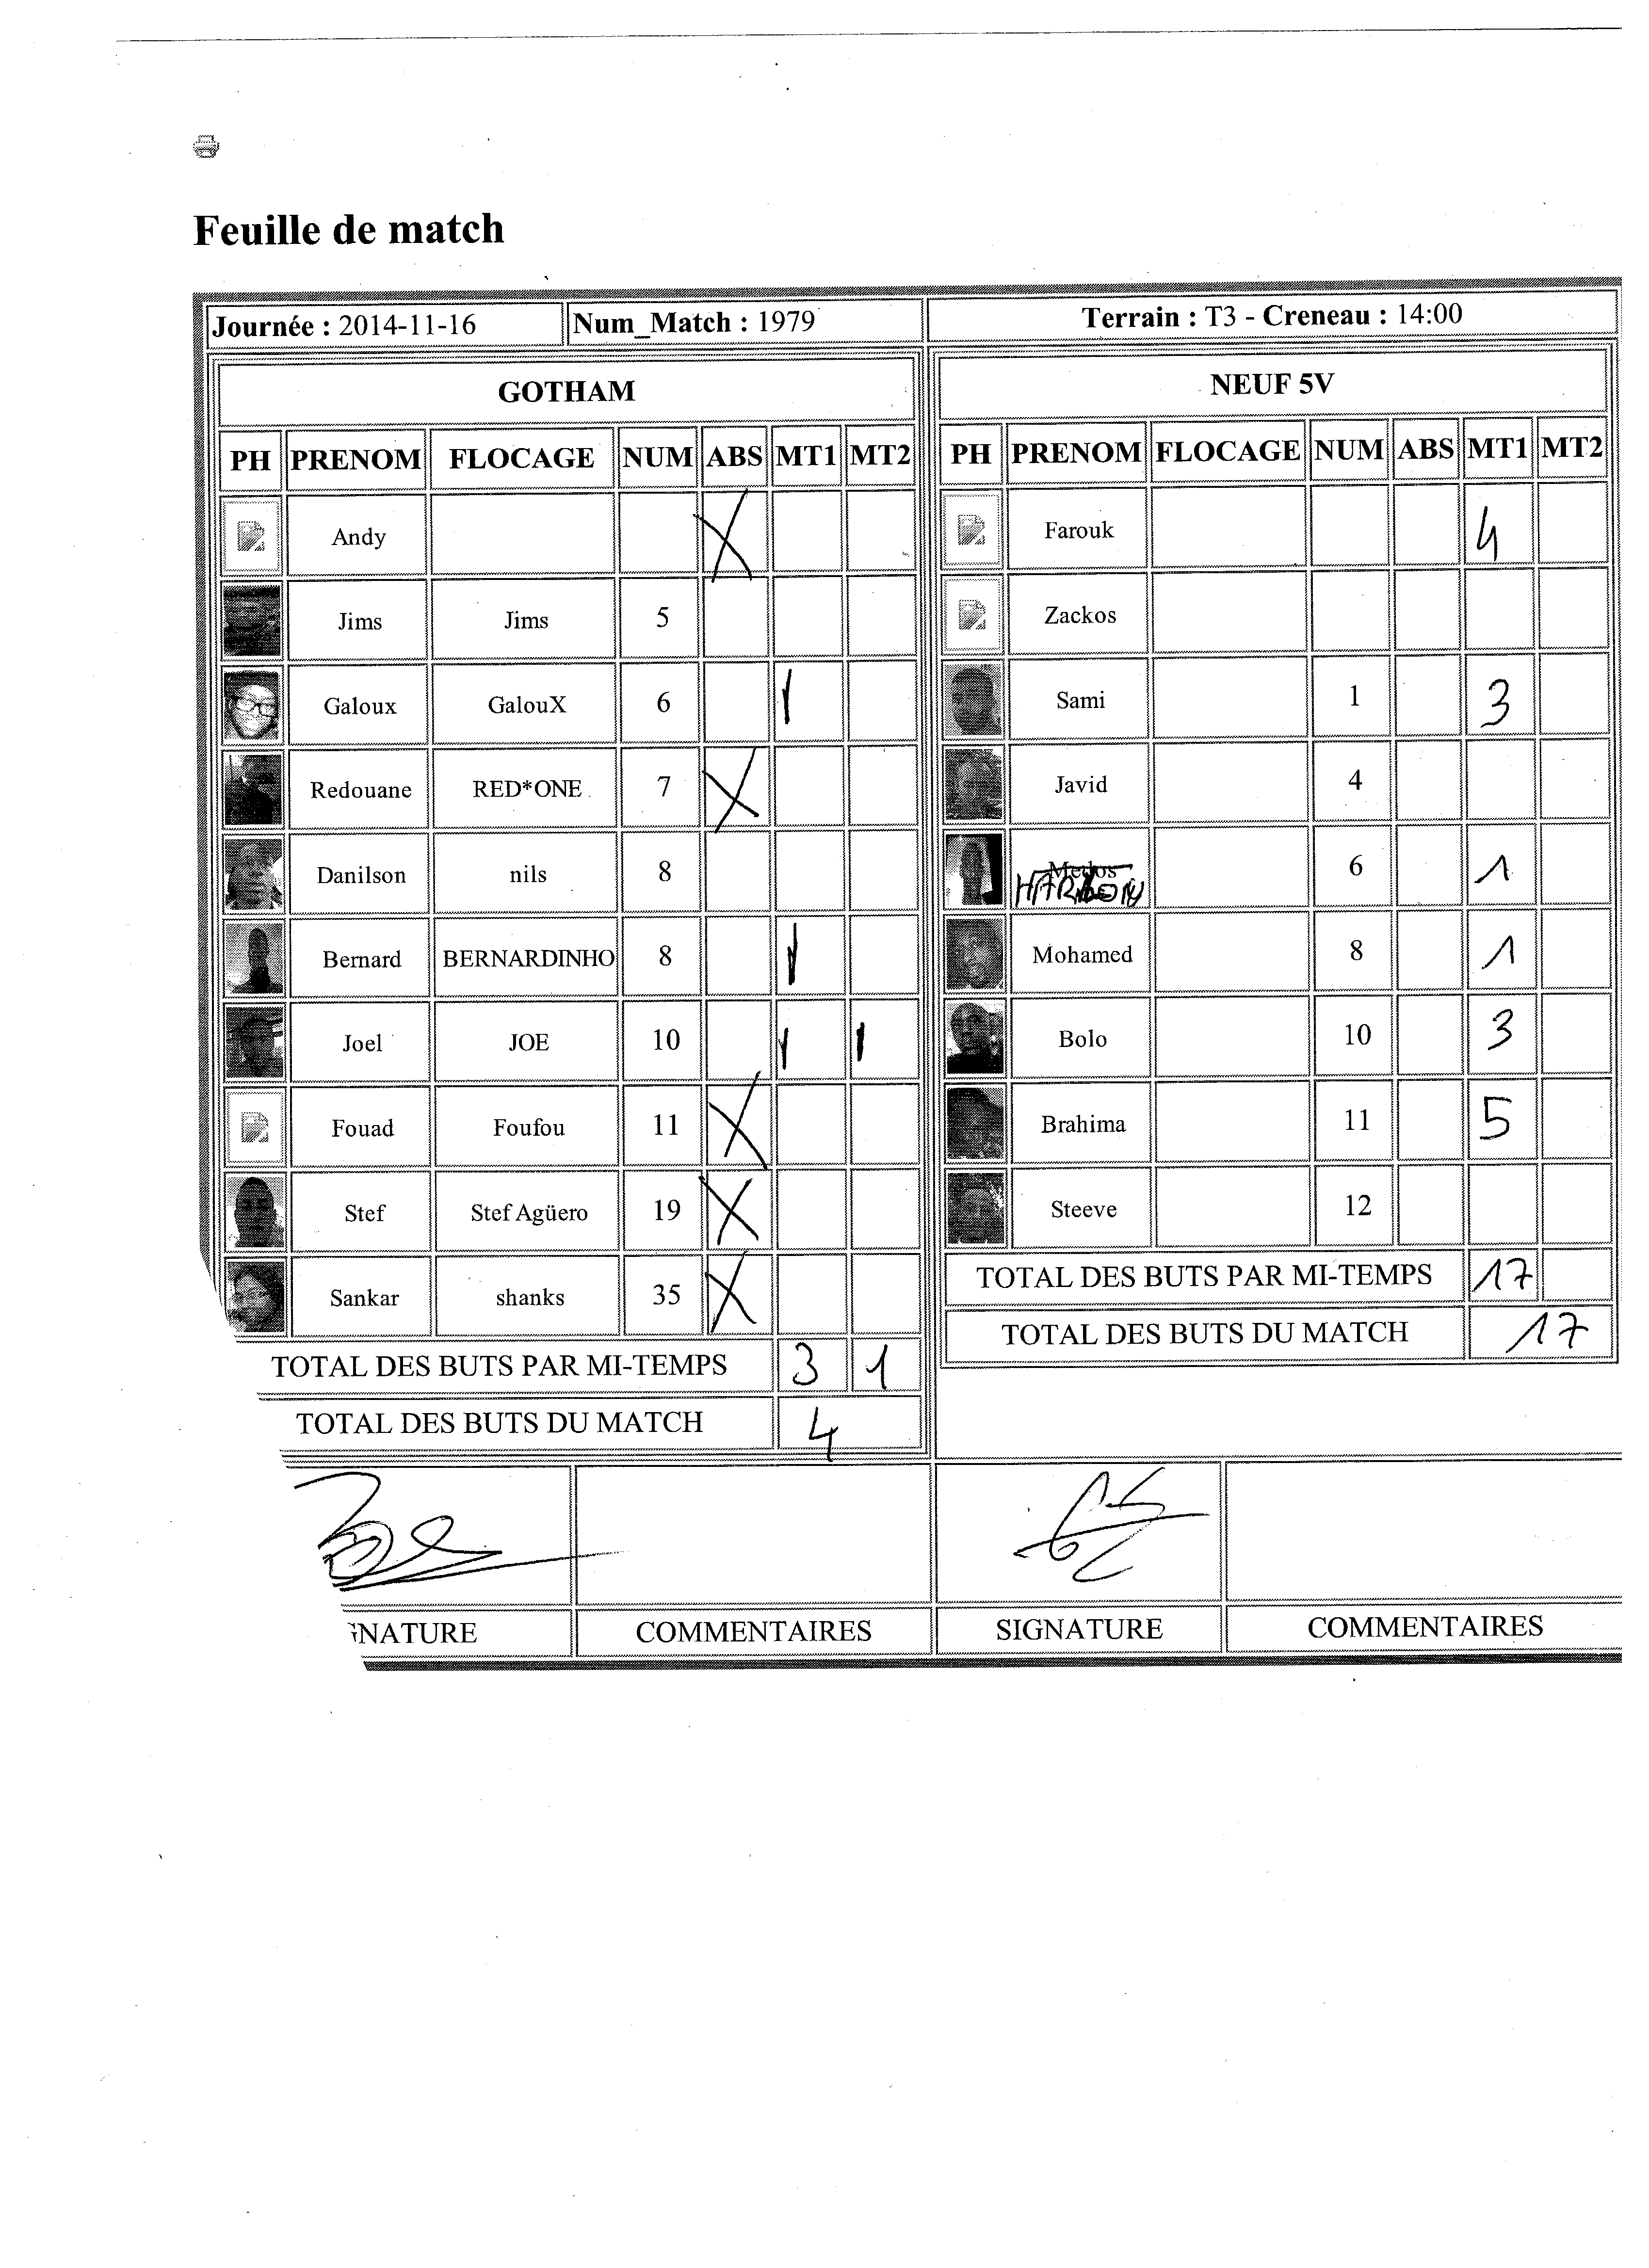 Feuille de match
Journée : 2014-11-16 Num_Match : 1979 Terrain : T3 - Creneau : 14:00
GOTHAM
PH PRENOM FLOCAGE NUM ABS MT1 MT2
Andy X
Jims Jims 5
Galoux GalouX 6 1
Redouane RED*ONE 7 X
Danilson nils 8
Bernard BERNARDINHO 8 1
Joel JOE 10 1 1
Fouad Foufou 11 X
Stef Stef Agüero 19 X
Sankar shanks 35 X
TOTAL DES BUTS PAR MI-TEMPS 3 1
TOTAL DES BUTS DU MATCH 4
NEUF 5V
PH PRENOM FLOCAGE NUM ABS MT1 MT2
Farouk 4
Zackos
Sami 1 3
Javid 4
6 1
Mohamed 8 1
Bolo 10 3
Brahima 11 5
Steeve 12
TOTAL DES BUTS PAR MI-TEMPS 17
TOTAL DES BUTS DU MATCH 17
GNATURE COMMENTAIRES SIGNATURE COMMENTAIRES